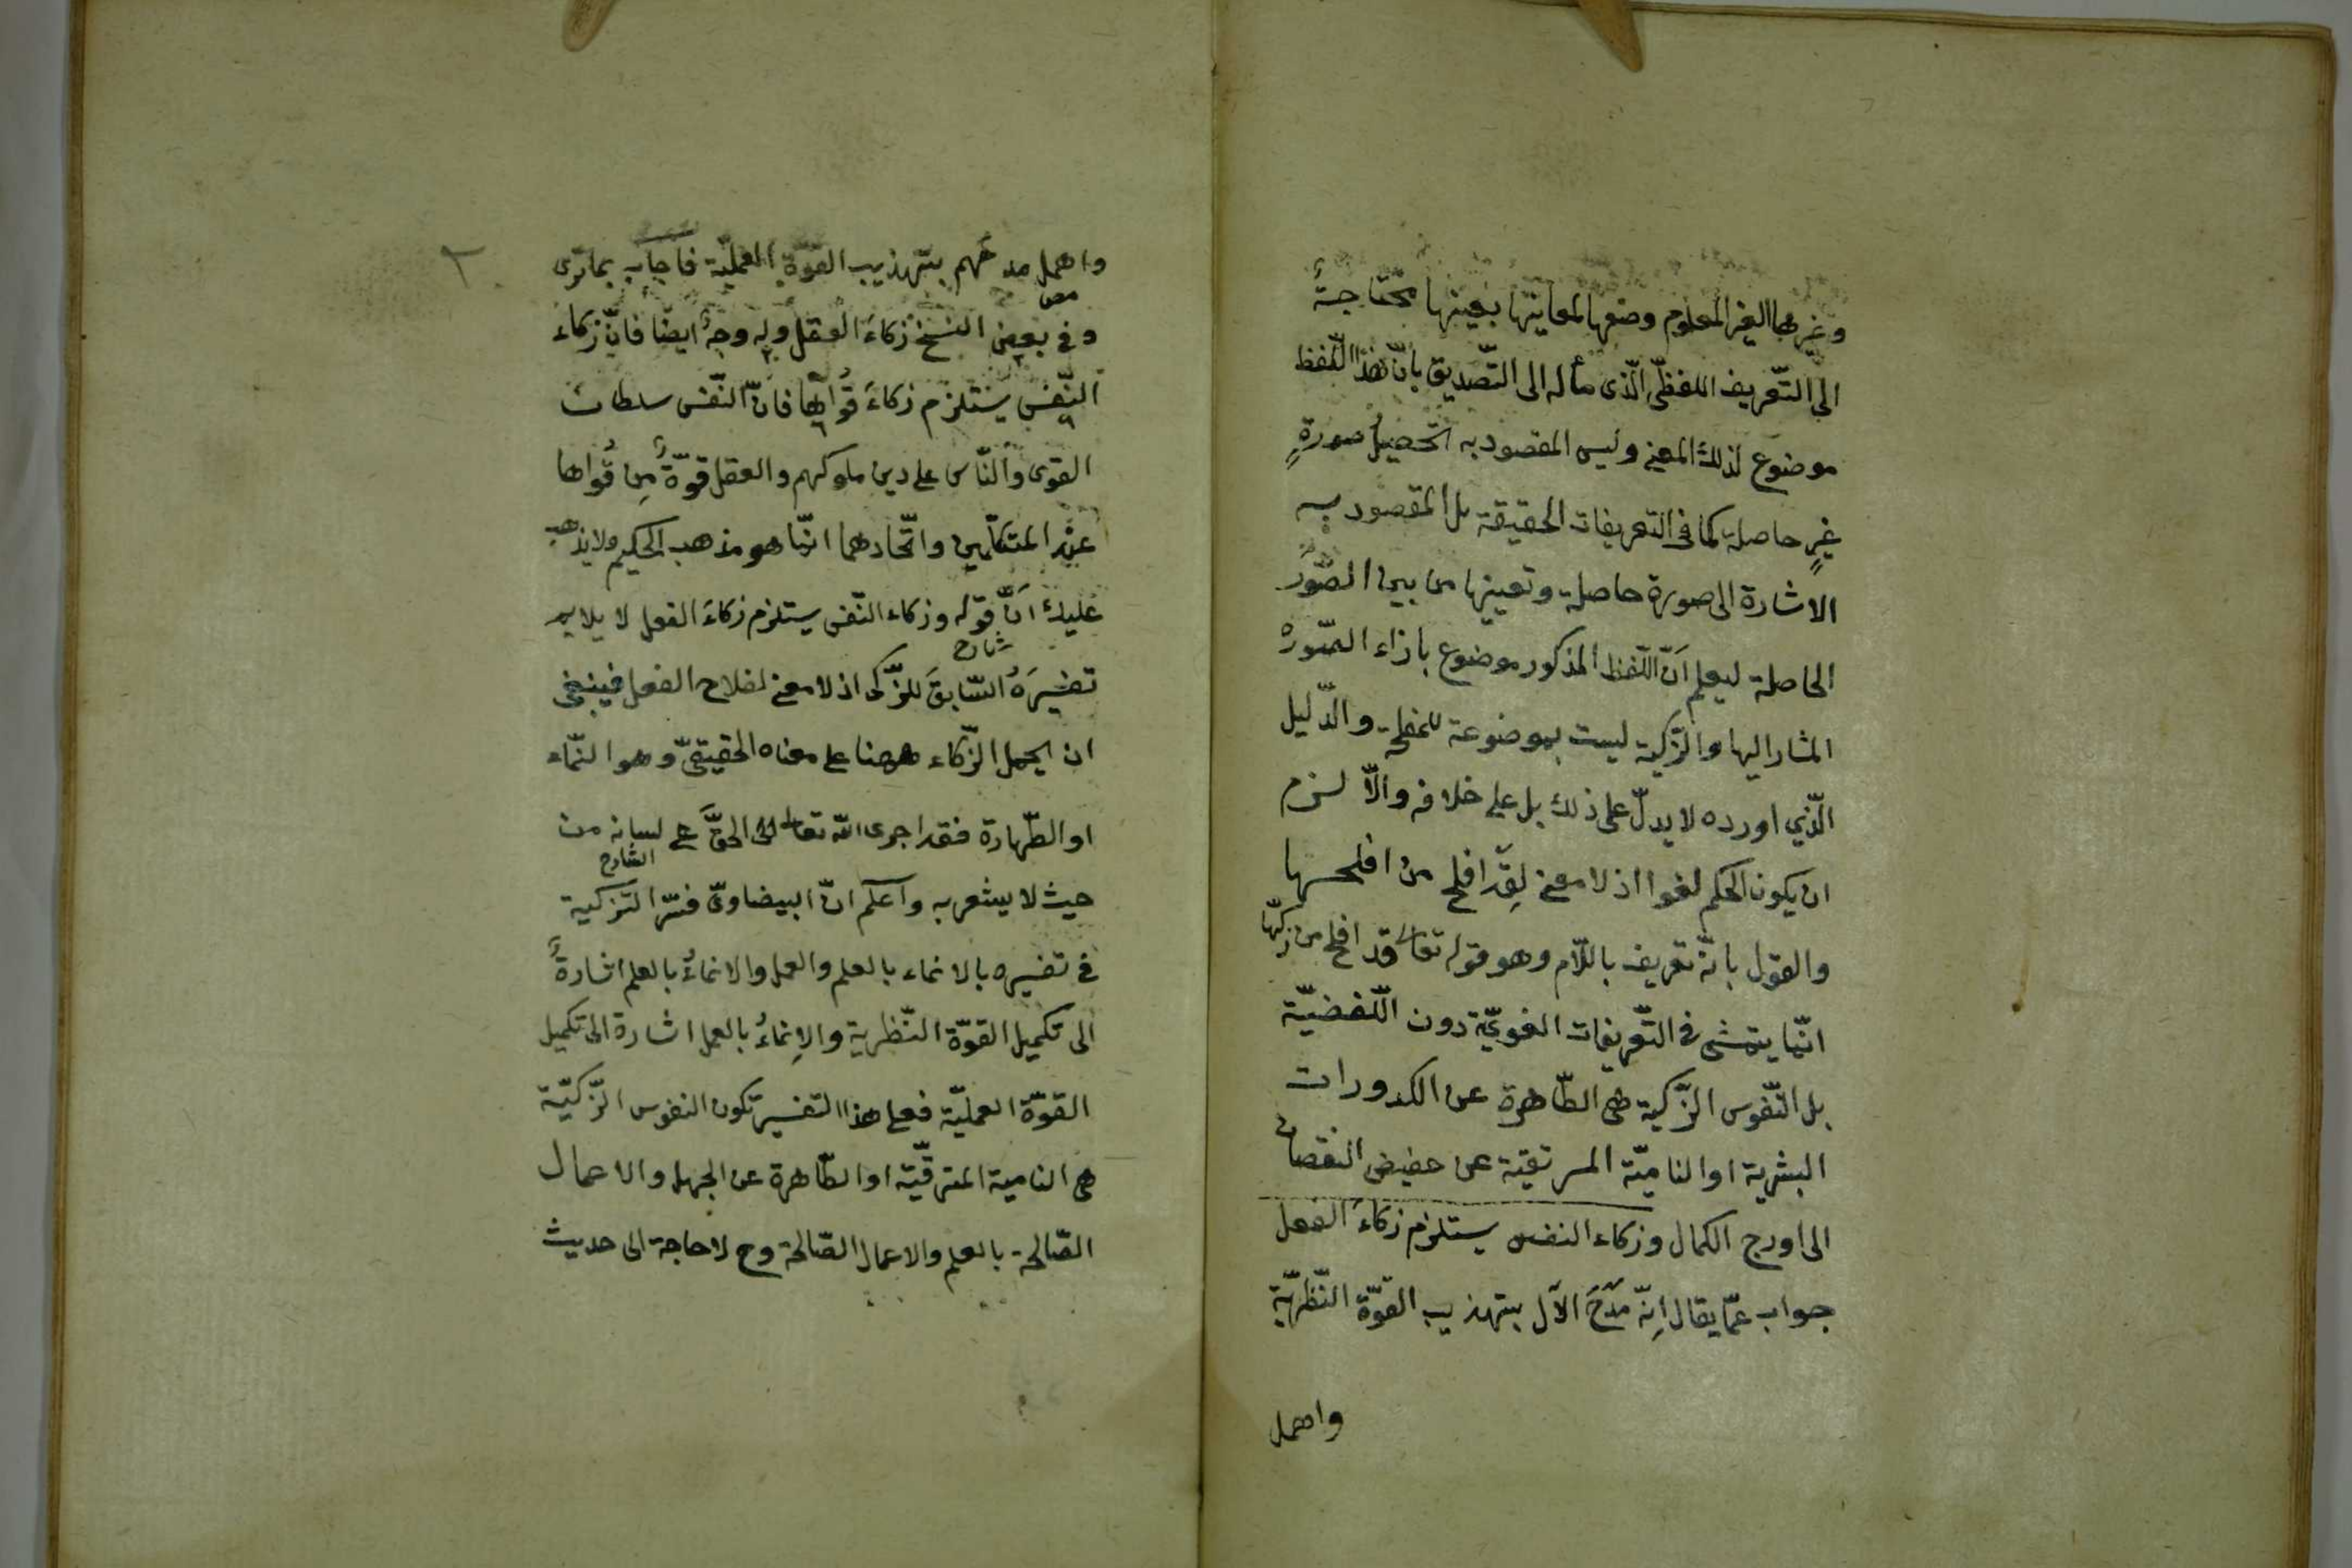 وغيرها الغير المعلوم وضعها لمعانيها بعينها محتاجةً
الى التّعريف اللفظىّ الّذى مأله الى التّصديق بانّ هذا اللّفظ
موضوع لذلك المعنى وليس المقصود به تحصيل صورةٍ
غيرٍ حاصلة كما فى التعريفات الحقيقة بل المقصود به
الاشارة الى صورة حاصلة وتعيينها من بين الصّور
الحاصلة ليعلم انّ اللّفظ المذكور موضوع بازاء الصّورة
المشار اليها والزّكية ليست بموضوعة للمفلحة والدّليل
الّذي اورده لا يدلّ على ذلك بل على خلافه والّا لزم
ان يكون الحكم لغوا اذ لا معنى لِقَد افلح من افلحها
والقول بانّه تعريف باللّازم وهو قوله تعالى قد افلح من زكّٰها
انّما يتمشى فى التّعريفات الغويّة دون اللّفضيّة
بل النّفوس الزّكية هى الطّاهرة عن الكدورات
البشرية او الناميّة المترقية عن حضيض النقصان
الى اورج الكمال وزكاء النفس يستلزم زكاءَ الفعل
جواب عمّا يقال اِنّه مَدَحَ الآل بتهذيب القوّة النّظريّة
واهمل
٢
واهمل مدحهم بتهذيب القوّة العمليّة فاجاب بما ترى
وفى بعض النسخ زكاءَ العقل وله وجهٌ ايضًا فانّ زكاء
النّفس يستلزم زكاءَ قُواها فانّ النّفس سلطان
القوى والنّاس على دين ملوكهم والعقل قوّةٌ مِن قُواها
عند المتكلّمين واتّحادهما انّما هو مذهب الحكيم ولا يذهب
عليك انّ قوله وزكاء النّفس يستلزم زكاءَ الفعل لا يلايم
شارح
تفسيرَهُ السّابقَ للزّكى اذ لا معنى لفلاح الفعل فينبغى
ان يحمل الزّكاء ههنا على معناه الحقيقىّ وهو النّماء
او الطّهارة فقد اجرى الله تعالى الحقَّ على لسانه من
الشارح
حيث لا يشعر به واعلم انّ البيضاوىّ فسّر التّزكية
فى تفسيره بالانماء بالعلم والعمل والانماءُ بالعلم اشارةٌ
الى تكميل القوّة النّظرية والاِنماءُ بالعمل اشارة الى تكميل
القوّة العمليّة فعلى هذا التفسير تكون النفوس الزّكيّة
هى النامية المترقّية او الطّاهرة عن الجهل والاعمال
الصّالحة بالعلم والاعمال الصّالحة وح لا حاجة الى حديث